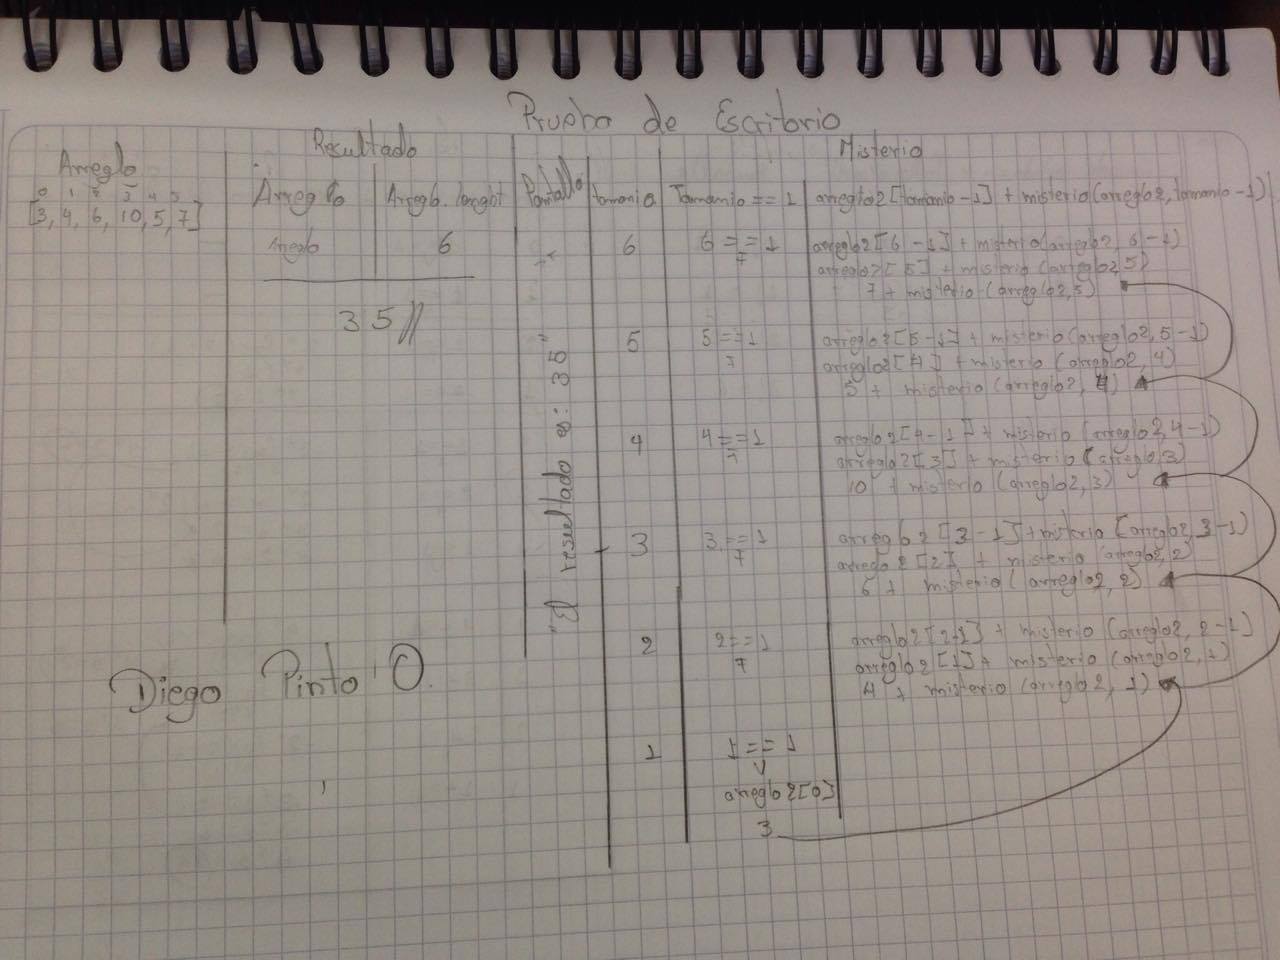 Prueba de Escritorio
Arreglo
0 1 2 3 4 5
[3, 4, 6, 10, 5, 7]
Resultado
Arreglo Arreglo. lenght
Arreglo 6
35//
Pantalla
"El resultado es: 35"
Misterio
tamanio Tamanio == 1 arreglo2[tamanio-1] + misterio(arreglo2, tamanio-1)
6 6 == 1 arreglo2[6-1] + misterio(arreglo2, 6-1)
F arreglo2[5] + misterio(arreglo2,5)
7 + misterio(arreglo2,5)
5 5 == 1 arreglo2[5-1] + misterio(arreglo2, 5-1)
F arreglo2[4] + misterio (arreglo2, 4)
5 + misterio(arreglo2, 4)
4 4 == 1 arreglo2[4-1] + misterio (arreglo2,4-1)
F arreglo2[3] + misterio (arreglo,3)
10 + misterio (arreglo2, 3)
3 3 == 1 arreglo2[3-1] + misterio (arreglo2, 3-1)
F arreglo2[2] + misterio (arreglo2, 2)
6 + misterio (arreglo2, 2)
2 2 == 1 arreglo2[2-1] + misterio (arreglo2, 2-1)
F arreglo2[1] + misterio (arreglo2, 1)
4 + misterio (arreglo2, 1)
1 1 == 1
V
arreglo2[0]
3
Diego Pinto O.